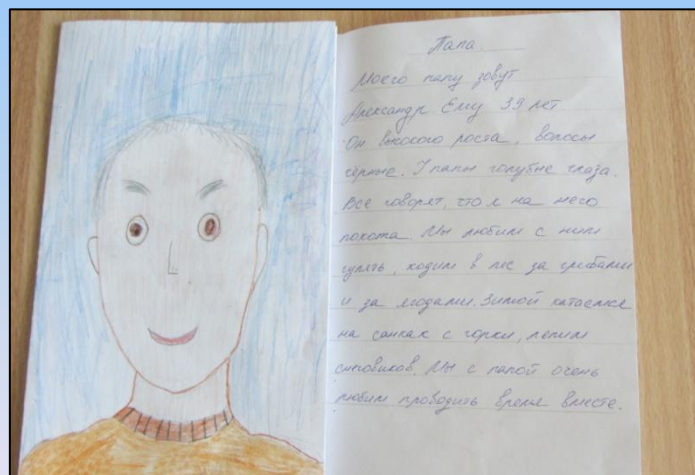 Папа
Моего папу зовут
Александр Ему 39 лет
Он высокого роста, волосы
чёрные. У папы голубые глаза.
Все говорят, что я на него
похожа. Мы любим с ним
гулять, ходим в лес за грибами
и за ягодами. Зимой катаемся
на санках с горки, лепим
снеговиков. Мы с папой очень
любим проводить время вместе.